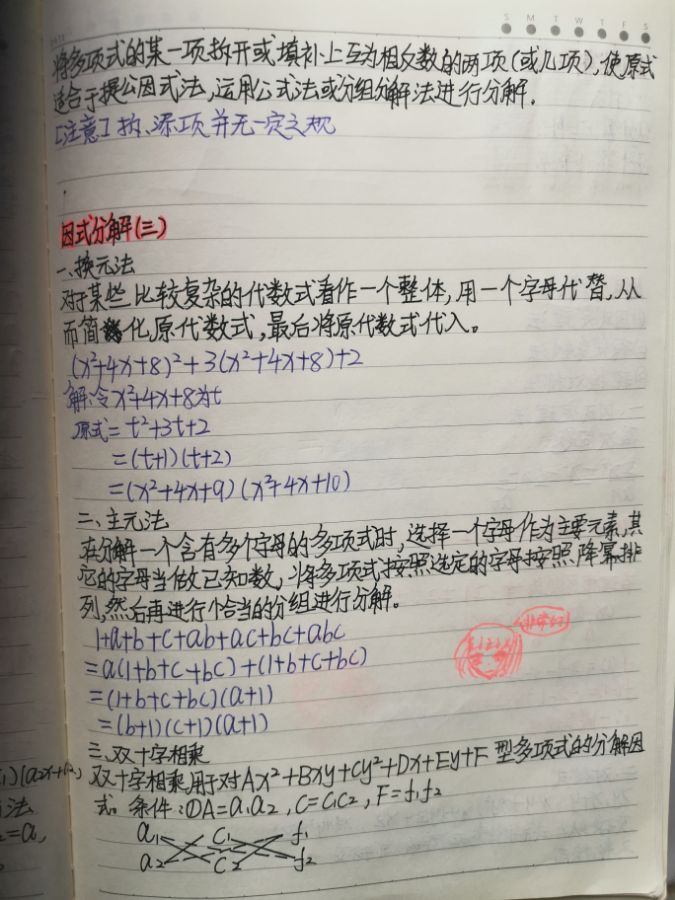 S M T W T F S
将多项式的某一项拆开或填补上互为相反数的两项(或几项),使原式
适合于提公因式法,运用公式法或分组分解法进行分解.
[注意]拆、添项并无一定之规
因式分解(三)
一、换元法
对于某些比较复杂的代数式看作一个整体,用一个字母代替,从
而简化原代数式,最后将原代数式代入。
(x²+4x+8)²+3(x²+4x+8)+2
解:令x²+4x+8为t
原式=t²+3t+2
=(t+1)(t+2)
=(x²+4x+9)(x²+4x+10)
二、主元法
在分解一个含有多个字母的多项式时,选择一个字母作为主要元素,其
它的字母当做已知数,将多项式按照选定的字母按照降幂排
列,然后再进行恰当的分组进行分解。
1+a+b+c+ab+ac+bc+abc
=a(1+b+c+bc)+(1+b+c+bc)
=(1+b+c+bc)(a+1)
=(b+1)(c+1)(a+1)
非常好
三、双十字相乘
双十字相乘用于对Ax²+Bxy+Cy²+Dx+Ey+F型多项式的分解因
式。条件:①A=a₁a₂,C=c₁c₂,F=f₁f₂
a₁ c₁ f₁
a₂ c₂ f₂
)(a₂x+c₂)
法
=a,